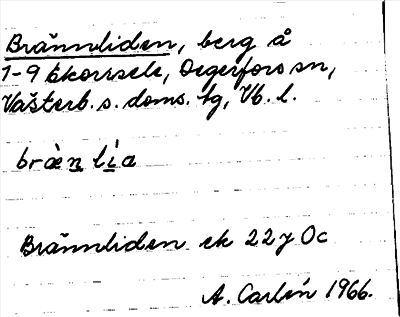 Brännliden, berg å
1-9 Ekorrsele, Degerfors sn,
Västerb. s. doms. tg, Vb. l.
bræ̀n lìa
Brännliden ek 22 y Oc
A. Carlén 1966.